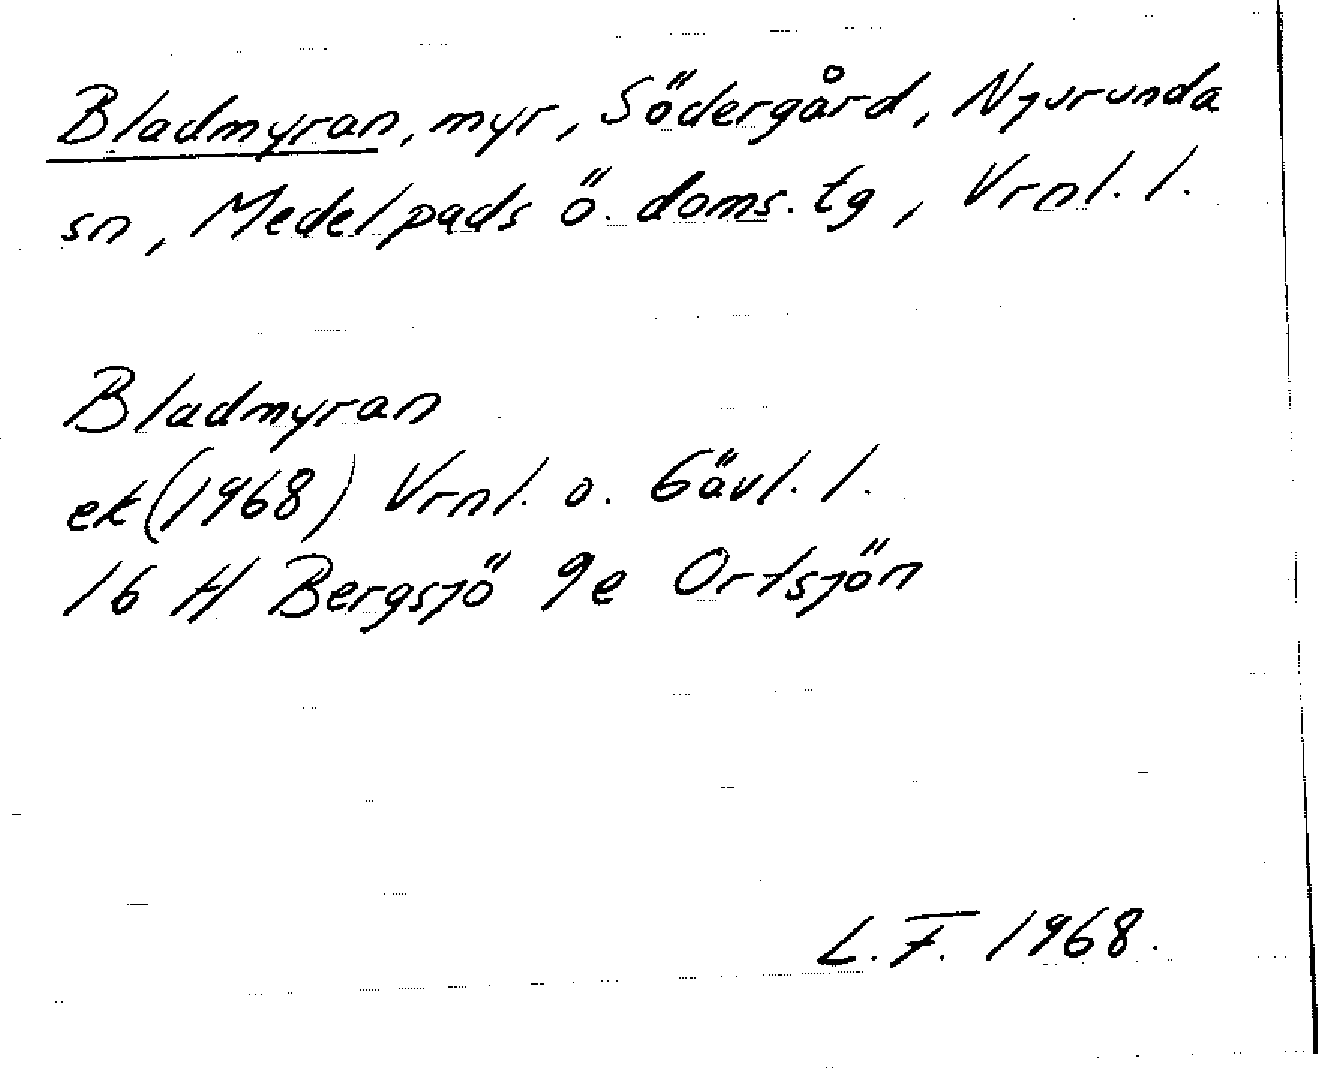 Bladmyran, myr, Södergård, Njurunda
sn, Medelpads ö. doms. tg, Vrnl. l.
Bladmyran
ek (1968) Vrnl. o. Gävl. l.
16 H Bergsjö 9e Ortsjön
L.F. 1968.